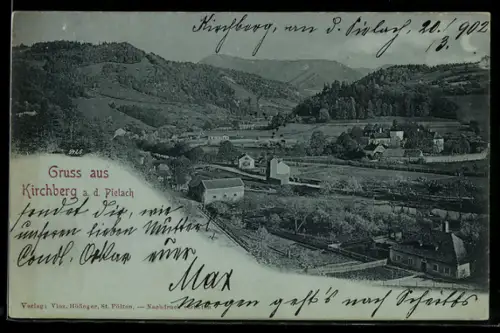 Kirchberg, an d. Pielach, 20./3. 902
Gruss aus
Kirchberg a. d. Pielach
sendet Dir, wie
unserer lieben Mutter,
Condl, Oskar euer
Max
Morgen geht's nach Scheibbs
Verlag: Vinc. Höfinger, St. Pölten. — Nachdruck